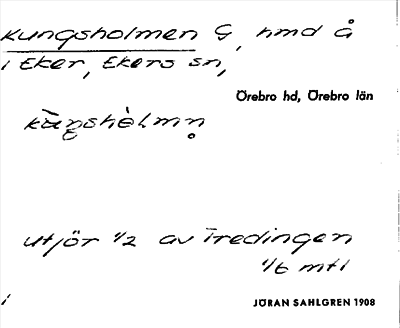 Kungsholmen G, hmd å
i Eker, Ekers sn,
Örebro hd, Örebro län
kūŋshòlmn̥
utjör 1/2 av Tredingen
1/6 mtl
JÖRAN SAHLGREN 1908